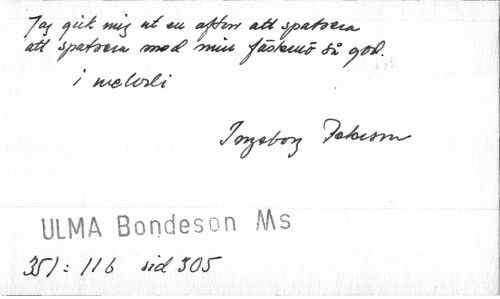 Jag gick mig ut en afton att spatsera
att spatsera med min fästemö så god.
i melodi
Ingeborg
ULMA Bondeson Ms
351:116 sid 305